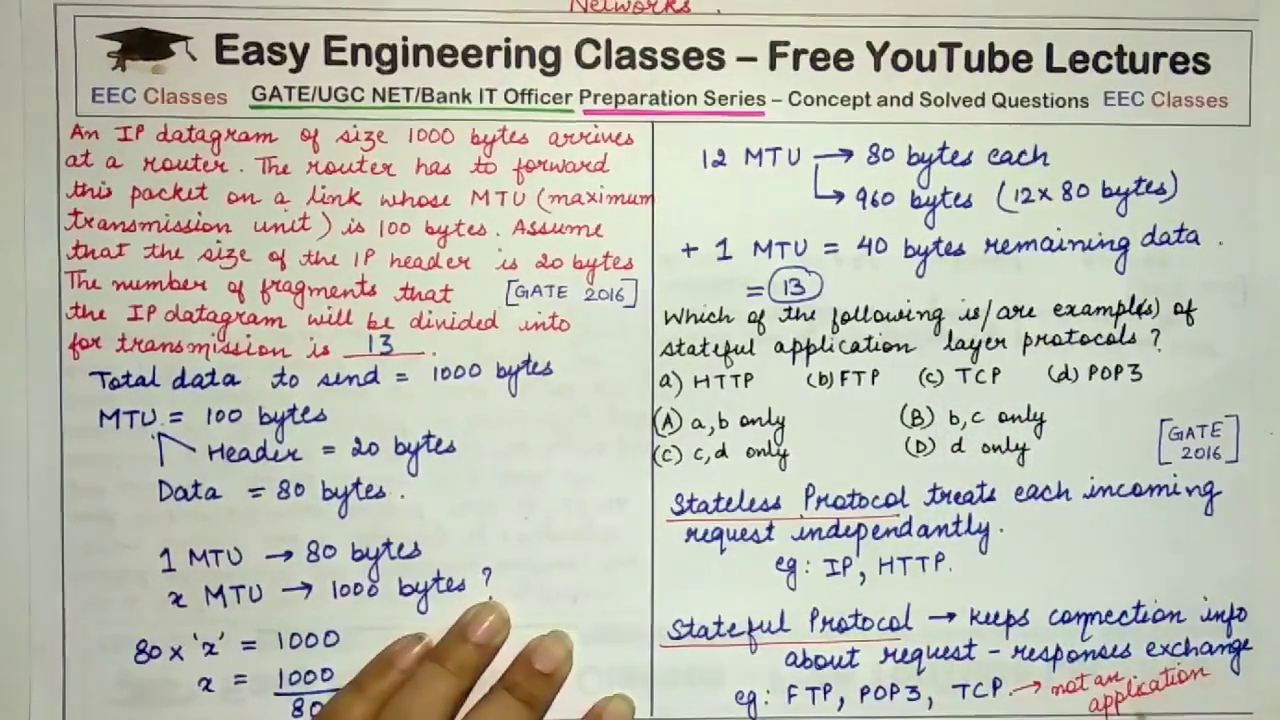 Networks.
Easy Engineering Classes – Free YouTube Lectures
EEC Classes GATE/UGC NET/Bank IT Officer Preparation Series – Concept and Solved Questions EEC Classes
An IP datagram of size 1000 bytes arrives
at a router. The router has to forward
this packet on a link whose MTU (maximum
transmission unit) is 100 bytes. Assume
that the size of the IP header is 20 bytes
The number of fragments that [GATE 2016]
the IP datagram will be divided into
for transmission is 13.
Total data to send = 1000 bytes
MTU = 100 bytes
Header = 20 bytes
Data = 80 bytes.
1 MTU → 80 bytes
x MTU → 1000 bytes ?
80 x 'x' = 1000
x = 1000
80
12 MTU → 80 bytes each
↳ 960 bytes (12 x 80 bytes)
+ 1 MTU = 40 bytes remaining data.
= 13
Which of the following is/are example(s) of
stateful application layer protocols ?
a) HTTP (b) FTP (c) TCP (d) POP3
(A) a, b only (B) b, c only
(C) c, d only (D) d only
[GATE
2016]
Stateless Protocol treats each incoming
request independantly.
eg: IP, HTTP.
Stateful Protocol → keeps connection info
about request – responses exchange
eg: FTP, POP3, TCP. → not an
application